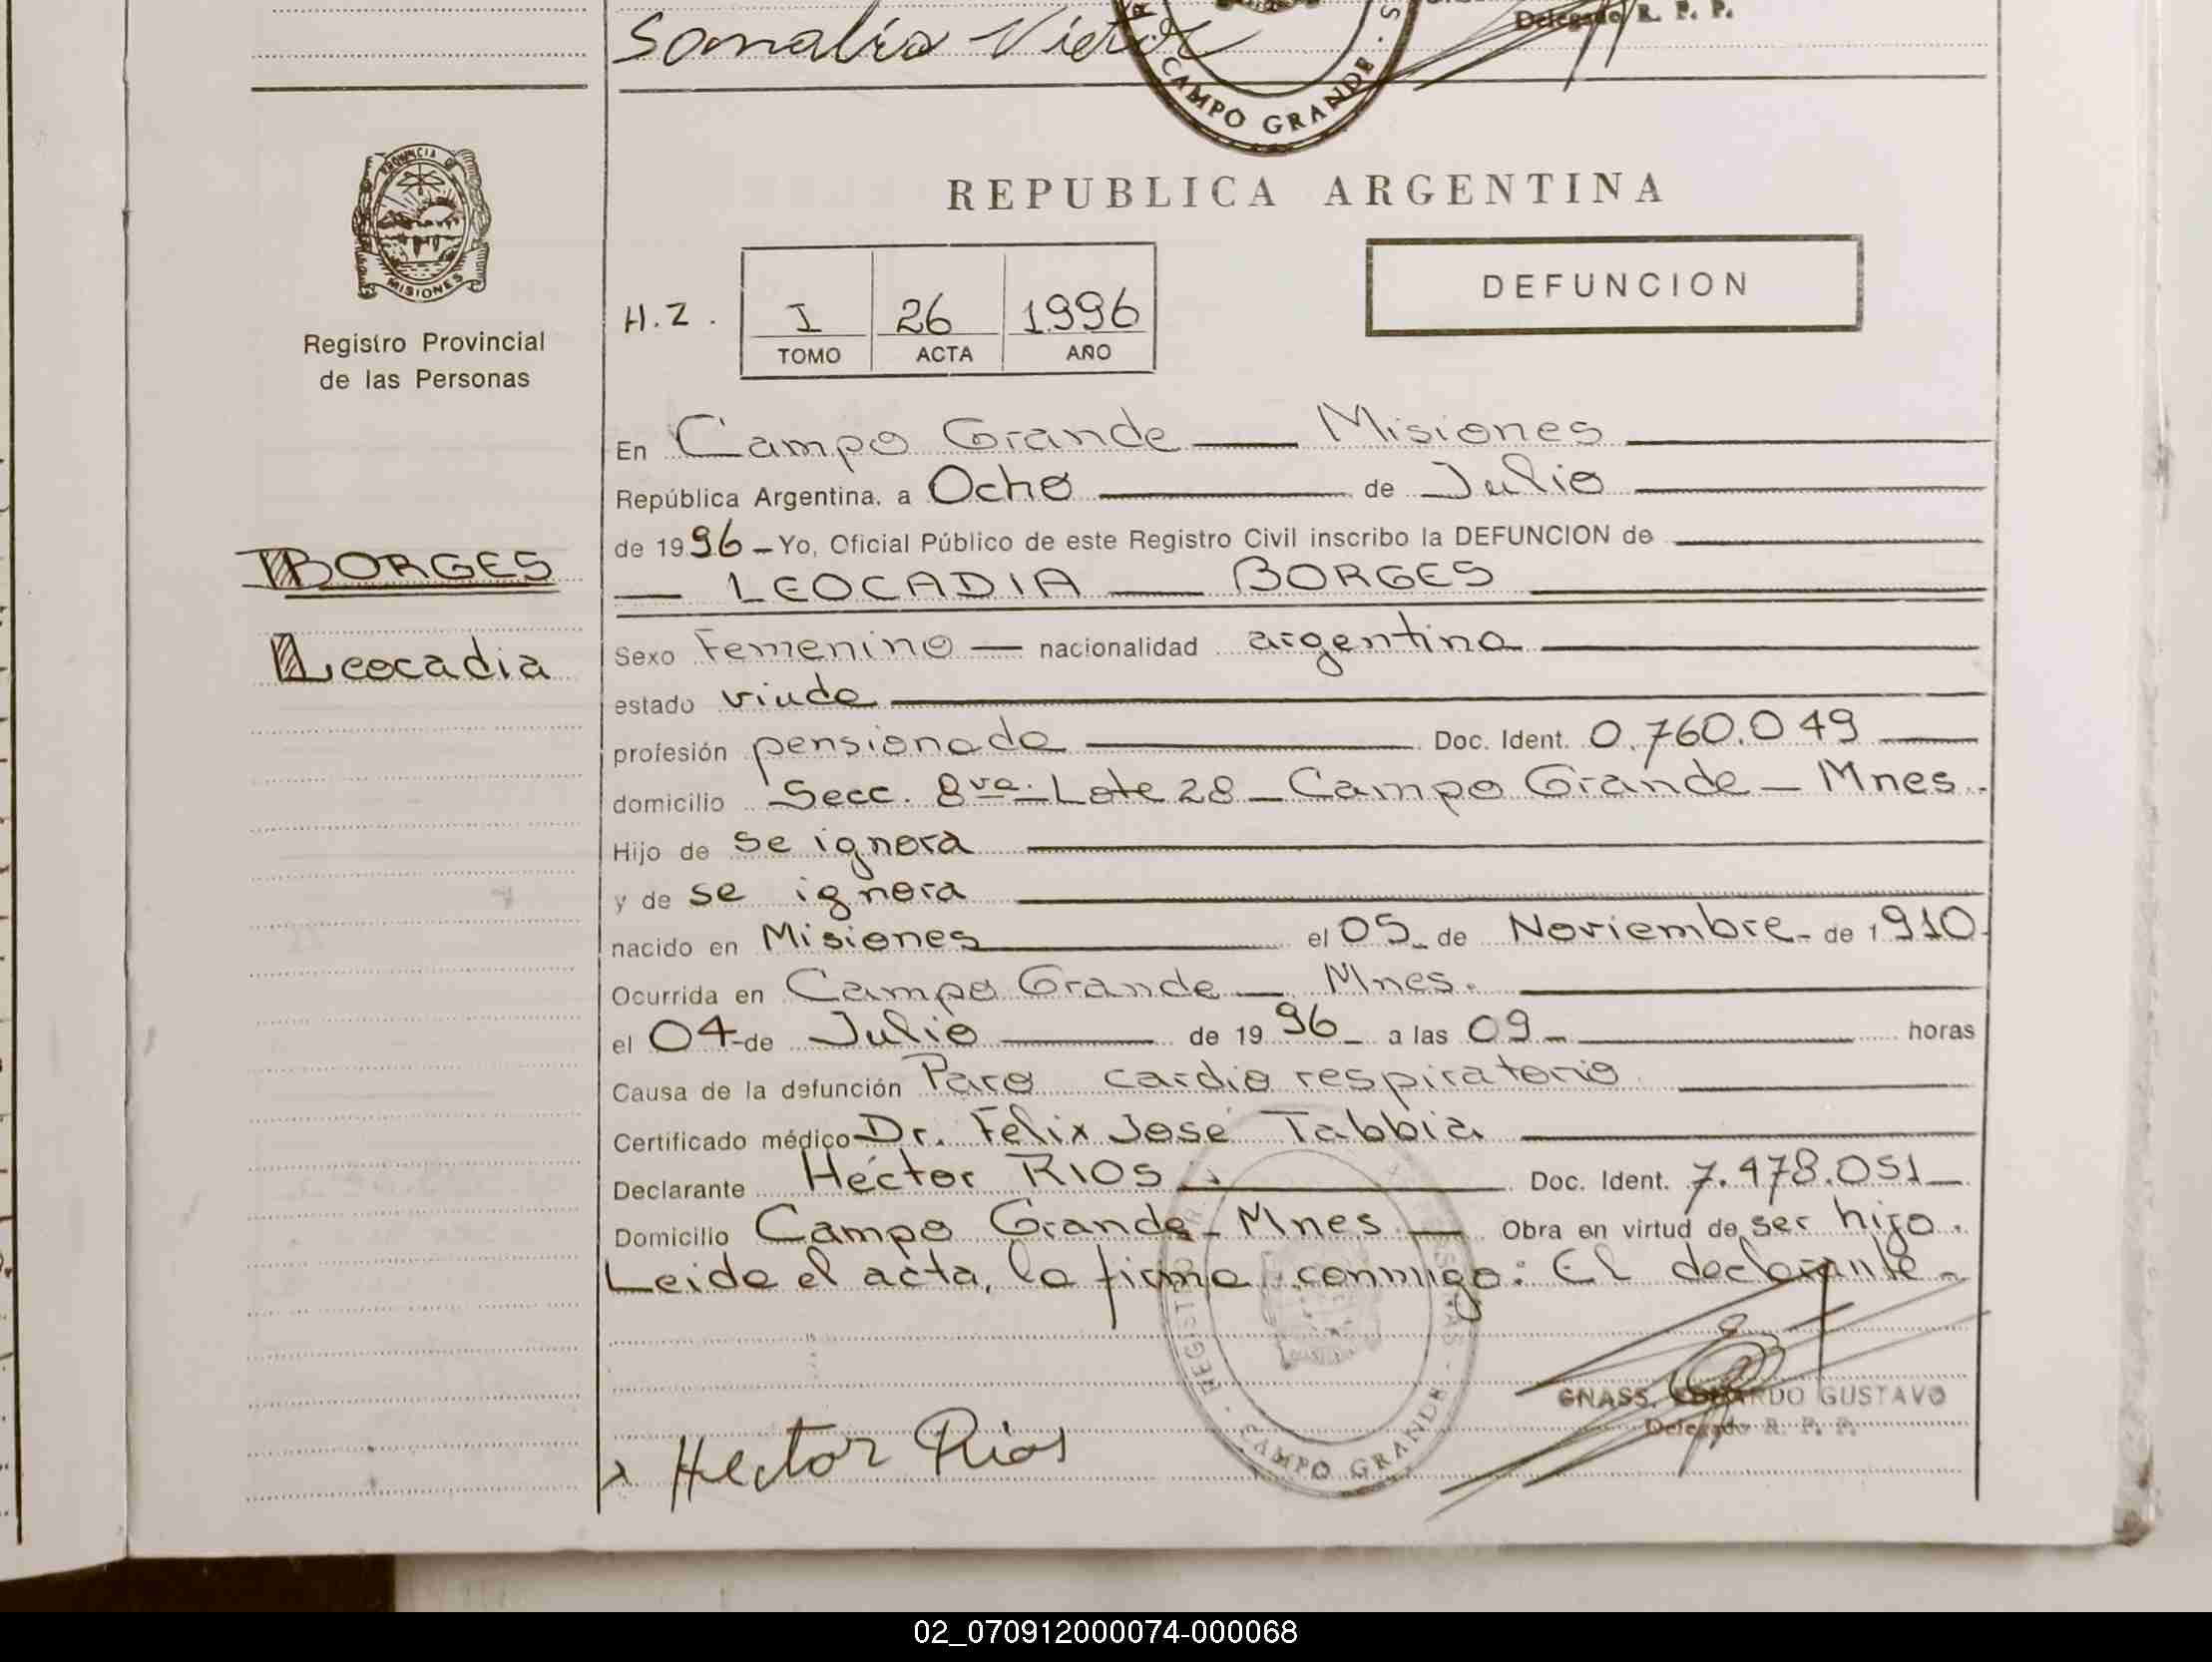 Somalia Victor
Delegado R. P. P.
CAMPO GRANDE
PROVINCIA DE
MISIONES
Registro Provincial
de las Personas
REPUBLICA ARGENTINA
H.Z. I 26 1996
TOMO ACTA AÑO
DEFUNCION
En Campo Grande — Misiones
República Argentina, a Ocho de Julio
de 1996 - Yo, Oficial Público de este Registro Civil inscribo la DEFUNCION de
BORGES
— LEOCADIA — BORGES
Leocadia
Sexo Femenino — nacionalidad argentina
estado viuda
profesión pensionada Doc. Ident. 0.760.049
domicilio Secc. 8va. Lote 28 - Campo Grande - Mnes.
Hijo de se ignora
y de se ignora
nacido en Misiones el 05 de Noviembre de 1910
Ocurrida en Campo Grande — Mnes.
el 04 de Julio de 1996 a las 09 horas
Causa de la defunción Paro cardio respiratorio
Certificado médico Dr. Felix José Tabbia
Declarante Héctor RIOS Doc. Ident. 7.478.051
Domicilio Campo Grande - Mnes — Obra en virtud de ser hijo.
Leida el acta, la firma conmigo: El declarante -
REGISTRO
CAMPO GRANDE
GNASS, EDUARDO GUSTAVO
Delegado R. P. P.
x Hector Rios
02_070912000074-000068